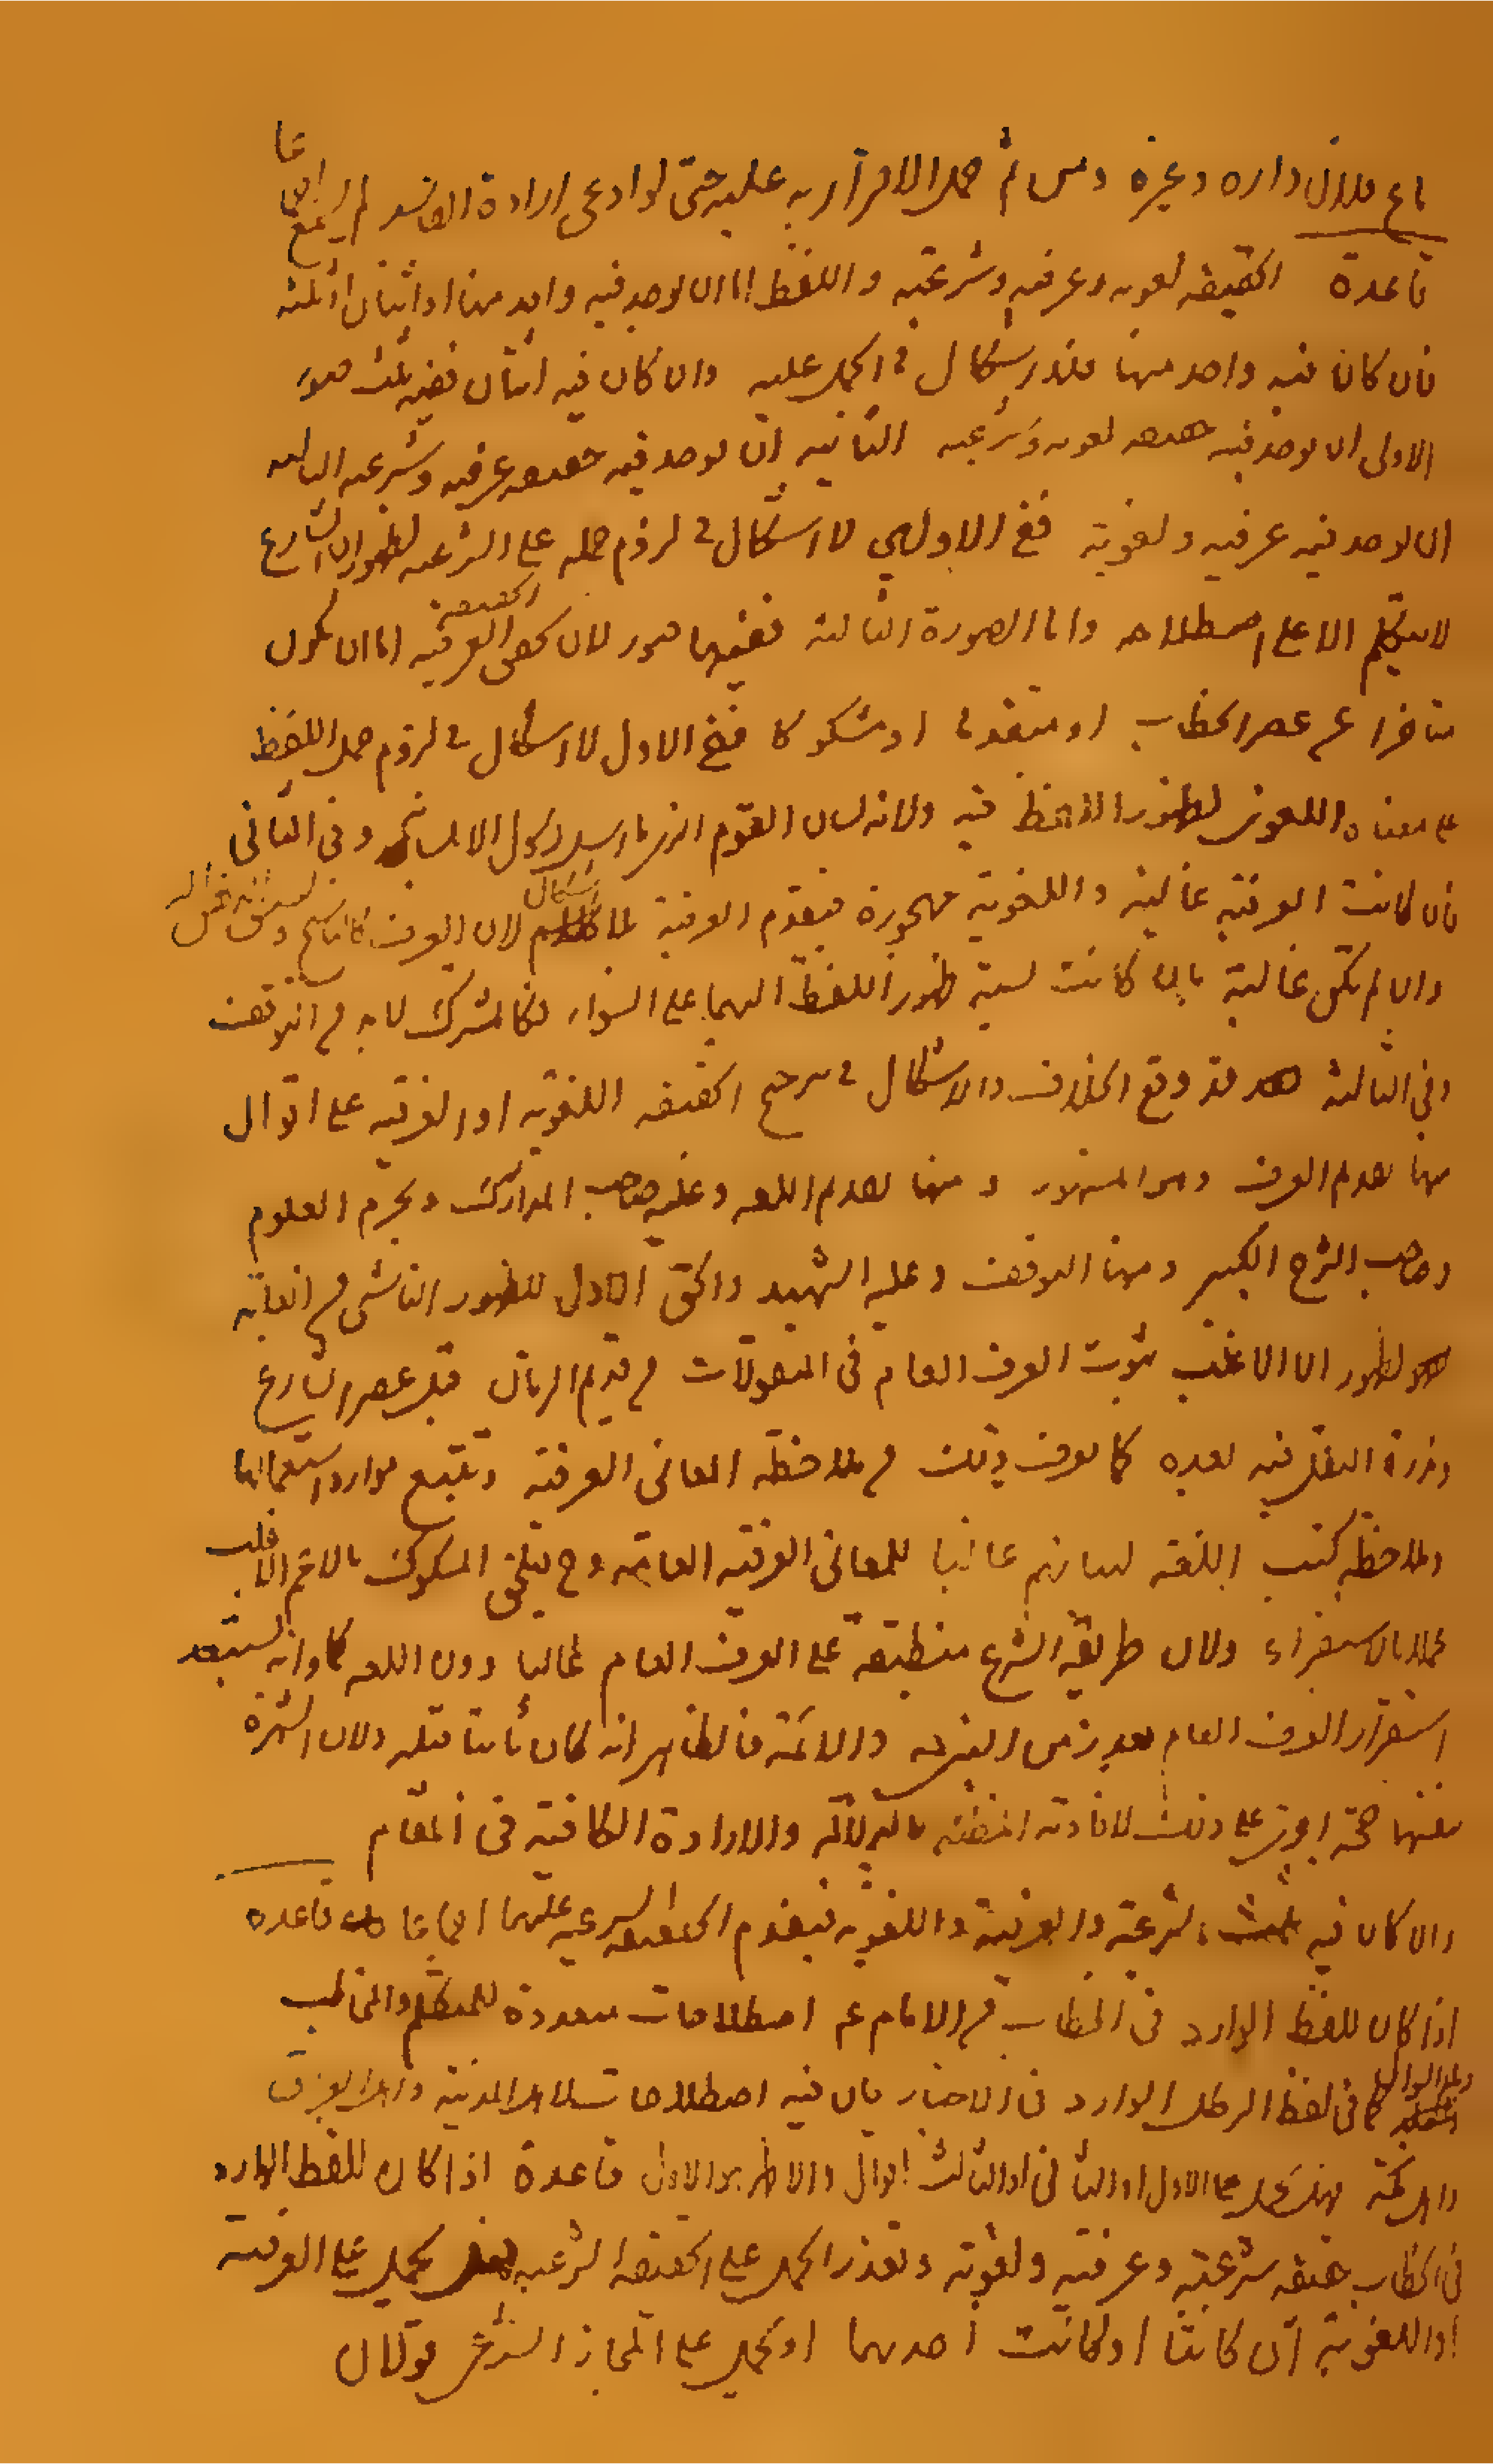 باع فلان داره وغيره ومن ثم حمل الاقرار به عليه حتى لو ادعى ارادة الفاسد لم يسمع اجماعا
قاعدة الحقيقة لغويه وعرفيه وشرعيه واللفظ اما ان يوجد فيه واحد منها او اثنان او ثلثه
فان كان فيه واحد منها فلا اشكال في الحمل عليه وان كان فيه اثنان ففيه ثلث صور
الاولى ان يوجد فيه حقيقه لغويه وشرعيه الثانيه ان يوجد فيه حقيقه عرفيه وشرعيه الثالثه
ان يوجد فيه عرفيه ولغوية ففي الاوليين لا اشكال في لزوم حمله على الشرعيه لظهور ان الشارع
لا يتكلم الا على اصطلاحه واما الصورة الثالثة ففيها صور لان الحقيقة العرفيه اما ان يكون
متاخرا عن عصر الخطاب او متقدما او مشكوكا ففي الاول لا اشكال في لزوم حمل اللفظ
على معناه اللغوى لظهور اللفظ فيه ولانه لسان القوم الذى ما ارسل رسول الا بلسانهم وفى الثانى
فان كانت العرفية غالبة واللغوية مهجورة فيقدم العرفية بلا اشكال لان العرف كالناسخ
وان لم تكن غالبة بان كانت نسبة ظهور اللفظ اليهما على السواء فكالمشترك لا بد من التوقف
وفى الثالثة فقد وقع الخلاف والاشكال في ترجيح الحقيقه اللغويه او العرفيه على اقوال
منها تقدم العرف وهو المشهور ومنها تقدم اللغه وعليه صاحب المدارك وبحر العلوم
وصاحب الشرح الكبير ومنها التوقف وعليه الشهيد والحق الاول للظهور الناشى من الغلبه
هو لظهور ان الاغلب ثبوت العرف العام فى المنقولات من قديم الزمان قبل عصر الشارع
وندرة النقل فيه بعده كما يعرف ذلك من ملاحظه المعانى العرفيه وتتبع موارد استعمالها
وملاحظه كتب اللغه لبيانهم غالبا للمعانى العرفيه العامه وح يلحق المشكوك بالاعم الاغلب
عملا بالاستقراء ولان طريقه الشرع منطبقة على العرف العام غالبا دون اللغه كما وانه يستبعد
استقرار العرف العام بعد زمن النبى والائمة فالظاهر انه كان ثابتا قبله ولان الشهرة
بنفسها حجة اخرى على ذلك لافادته المظنه بالدلالة والارادة الكافية فى المقام
وان كان فيه ثلث الشرعية والعرفية واللغويه فيقدم الحقيقه الشرعيه عليهما اجماعا قاعده
اذا كان للفظ الوارد فى الخطاب من الامام عم اصطلاحات متعددة للمتكلم والمخاطب
كما فى لفظ الرطل الوارد فى الاخبار فان فيه اصطلاحات لاهل المدينة واهل العراق
واهل مكة فهل يحمل على الاول او الثانى او الثالث اقوال والاظهر هو الاول قاعدة اذا كان للفظ الوارد
فى الخطاب حقيقه شرعيه وعرفيه ولغويه وتعذر الحمل على الحقيقه الشرعيه فهل يحمل على العرفية
او اللغوية ان كانتا او كانت احدهما او يحمل على المجاز الشرعى قولان